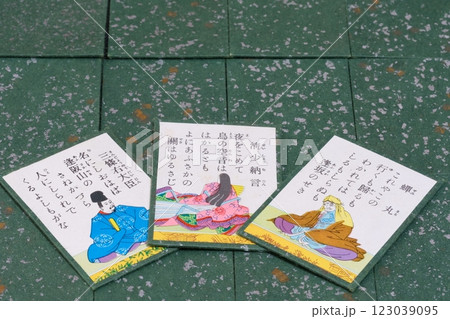 三條右大臣
名にしおはば
逢坂山の
さねかづら
人にしられで
くるよしもがな
清少納言
夜をこめて
鳥の空音は
はかるとも
よにあふさかの
關はゆるさじ
蟬丸
これやこの
行くも歸るも
わかれては
しるもしらぬも
逢坂のせき
123039095